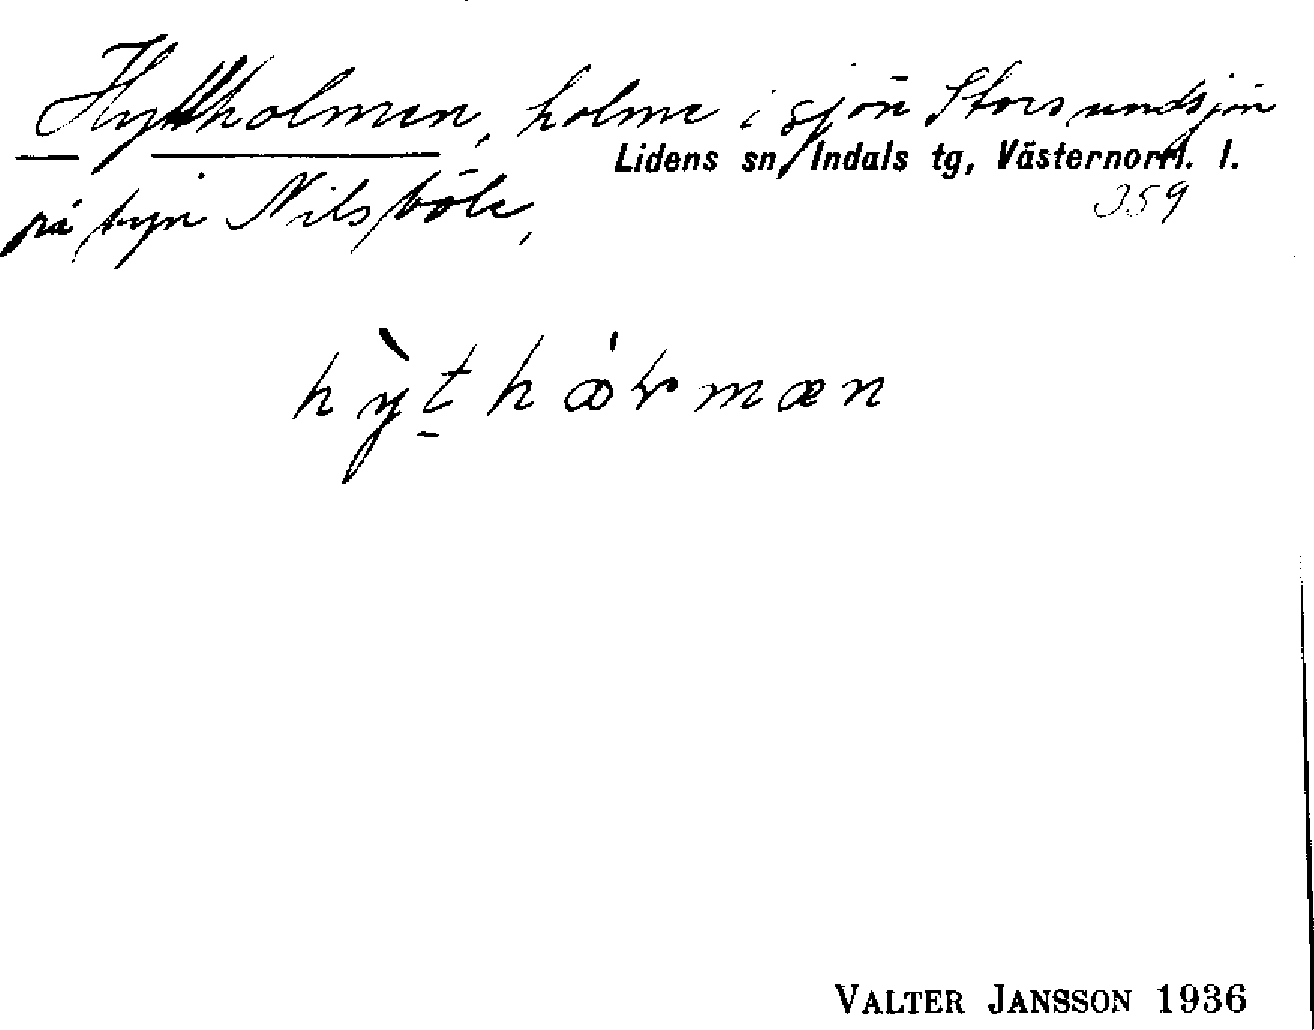 Hyttholmen, holme i sjön Storsundsjön
Lidens sn, Indals tg, Västernorrl. l.
på byn Nilsböle,
359
hỳ̱t hármæn
VALTER JANSSON 1936